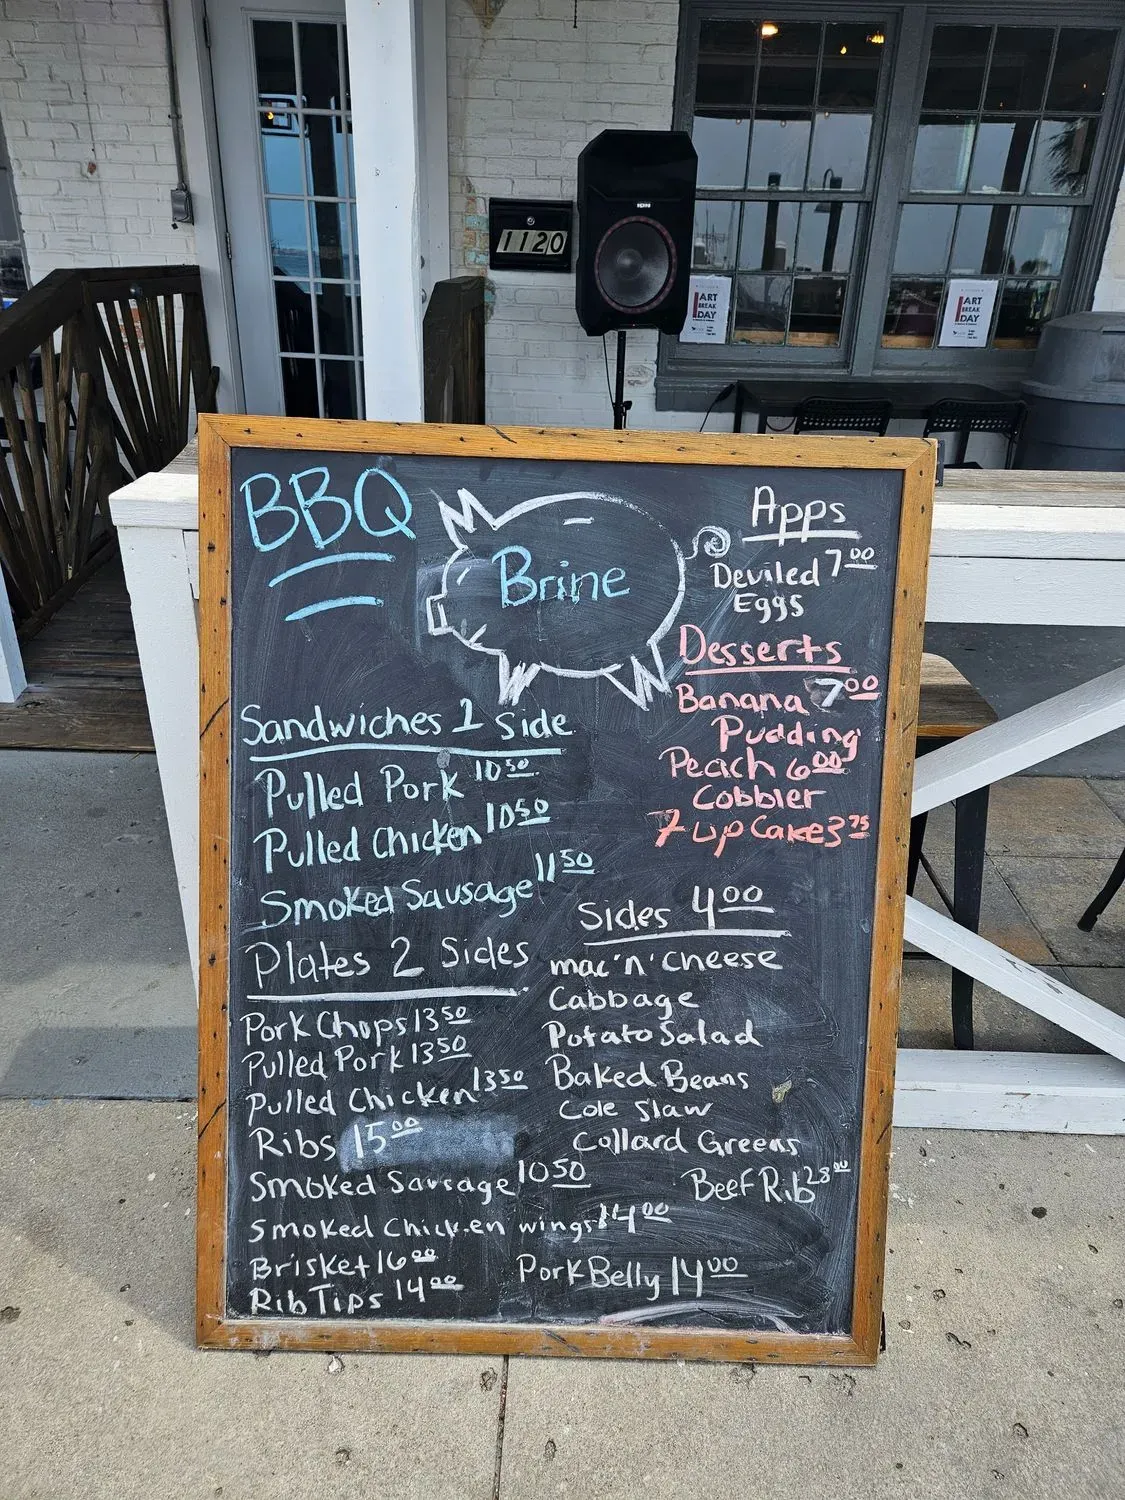 1120
ION
ART
BREAK
DAY
ART
BREAK
DAY
BBQ
Brine
Apps
Deviled 7.00
Eggs
Desserts
Banana 7.00
Pudding
Peach 6.00
Cobbler
7 up Cake 3.75
Sandwiches 1 side
Pulled Pork 10.50
Pulled Chicken 10.50
Smoked Sausage 11.50
Plates 2 Sides
Pork Chops 13.50
Pulled Pork 13.50
Pulled Chicken 13.50
Ribs 15.00
Smoked Sausage 10.50
Smoked Chicken wings 14.00
Brisket 16.00
Rib Tips 14.00
Sides 4.00
mac'n'cheese
Cabbage
Potato Salad
Baked Beans
Cole Slaw
Collard Greens
Beef Rib 28.00
Pork Belly 14.00